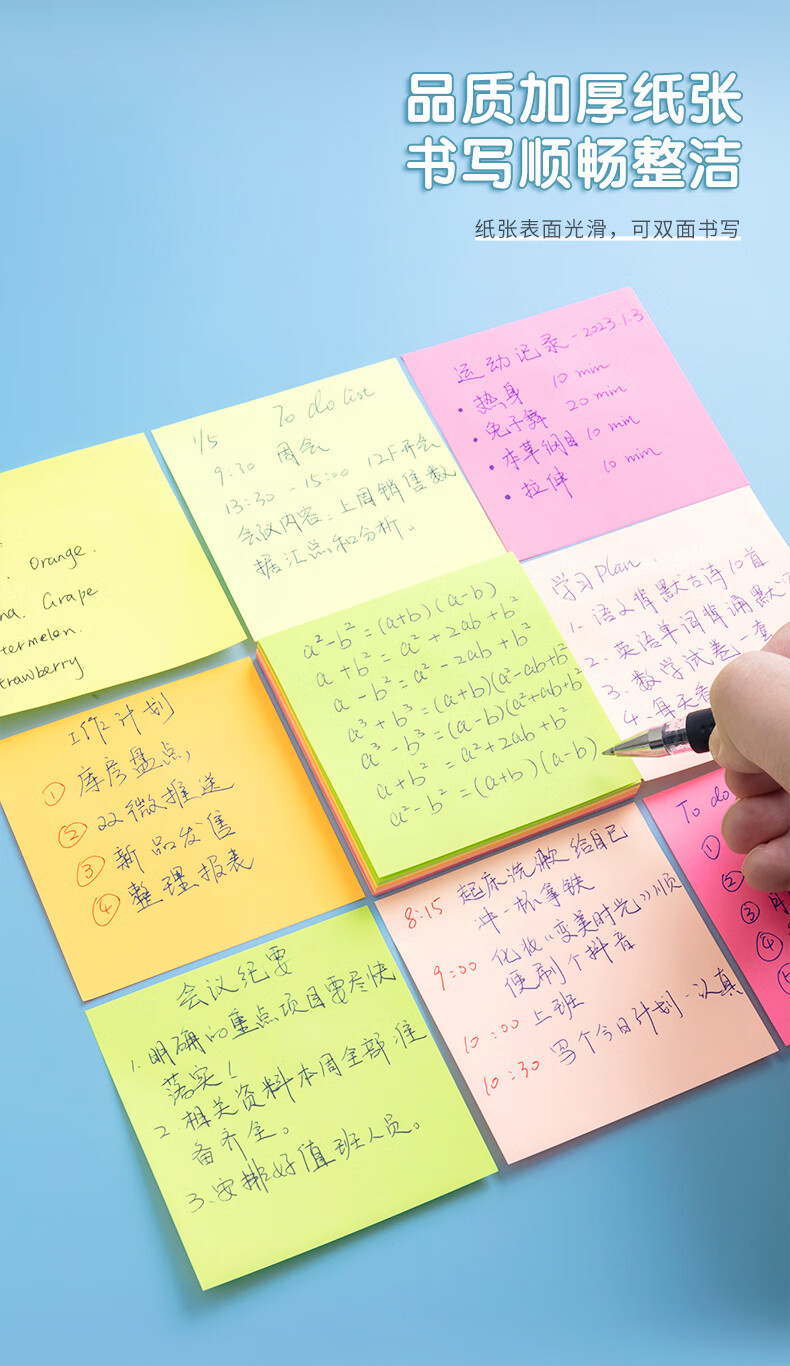 品质加厚纸张
书写顺畅整洁
纸张表面光滑，可双面书写
运动记录-2023.1.3
• 热身 10 min
• 兔子舞 20 min
• 本草纲目 10 min
• 拉伸 10 min
1/5 To do list
9:30 周会
13:30 - 15:00 12F开会
会议内容：上周销售数
据汇总和分析。
Orange.
Grape
termelon.
trawberry
学习plan.
1. 语文背默古诗10首
2. 英语单词背诵默
3. 数学试卷一查
4. 每天
a²-b²=(a+b)(a-b)
a+b²=a²+2ab+b²
a-b²=a²-2ab+b²
a³+b³=(a+b)(a²-ab+b²
a³-b³=(a-b)(a²+ab+b²
a+b²=a²+2ab+b²
a²-b²=(a+b)(a-b)
工作计划
① 库房盘点，
② 双微推送
③ 新品发售
④ 整理报表
To do
①
②
③ 月
④
8:15 起床洗漱给自己
冲一杯拿铁
9:00 化妆《变美时光》顺
便刷个抖音
10:00 上班
10:30 写个今日计划-认真
会议纪要
1. 明确的重点项目要尽快
落实！
2. 相关资料本周全部准
备齐全。
3. 安排好值班人员。